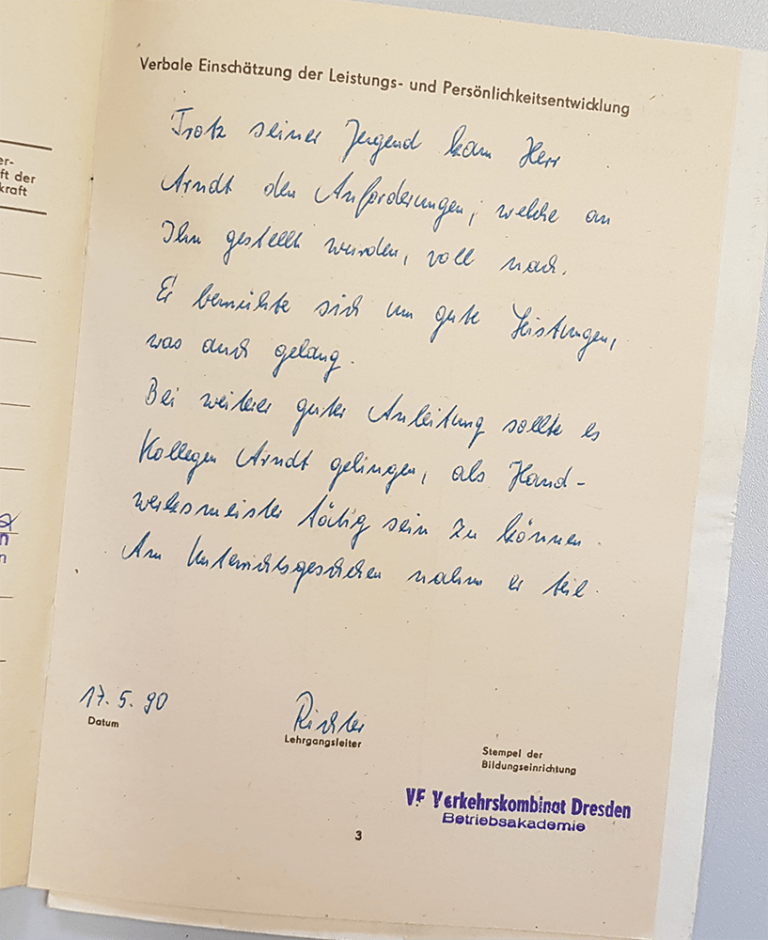 er-
ft der
kraft
Verbale Einschätzung der Leistungs- und Persönlichkeitsentwicklung
Trotz seiner Jugend kam Herr
Arndt den Anforderungen, welche an
Ihn gestellt wurden, voll nach.
Er bemühte sich um gute Leistungen,
was auch gelang.
Bei weiterer guter Anleitung sollte es
Kollegen Arndt gelingen, als Hand-
werksmeister tätig sein zu können.
Am Unterrichtsgeschehen nahm er teil.
17.5.90
Datum
Richter
Lehrgangsleiter
Stempel der
Bildungseinrichtung
VE Verkehrskombinat Dresden
Betriebsakademie
3